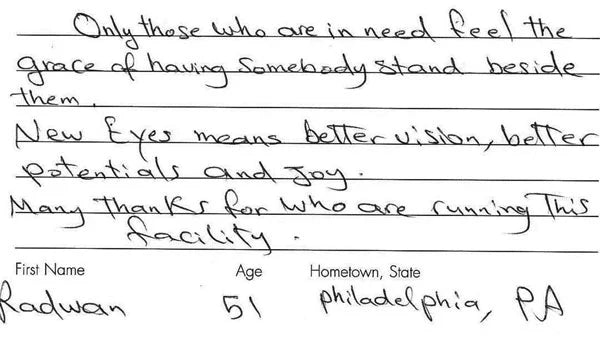 Only those who are in need feel the
grace of having somebody stand beside
them.
New Eyes means better vision, better
potentials and joy.
Many thanks for who are running This
facility.
First Name Age Hometown, State
Radwan 51 philadelphia, PA